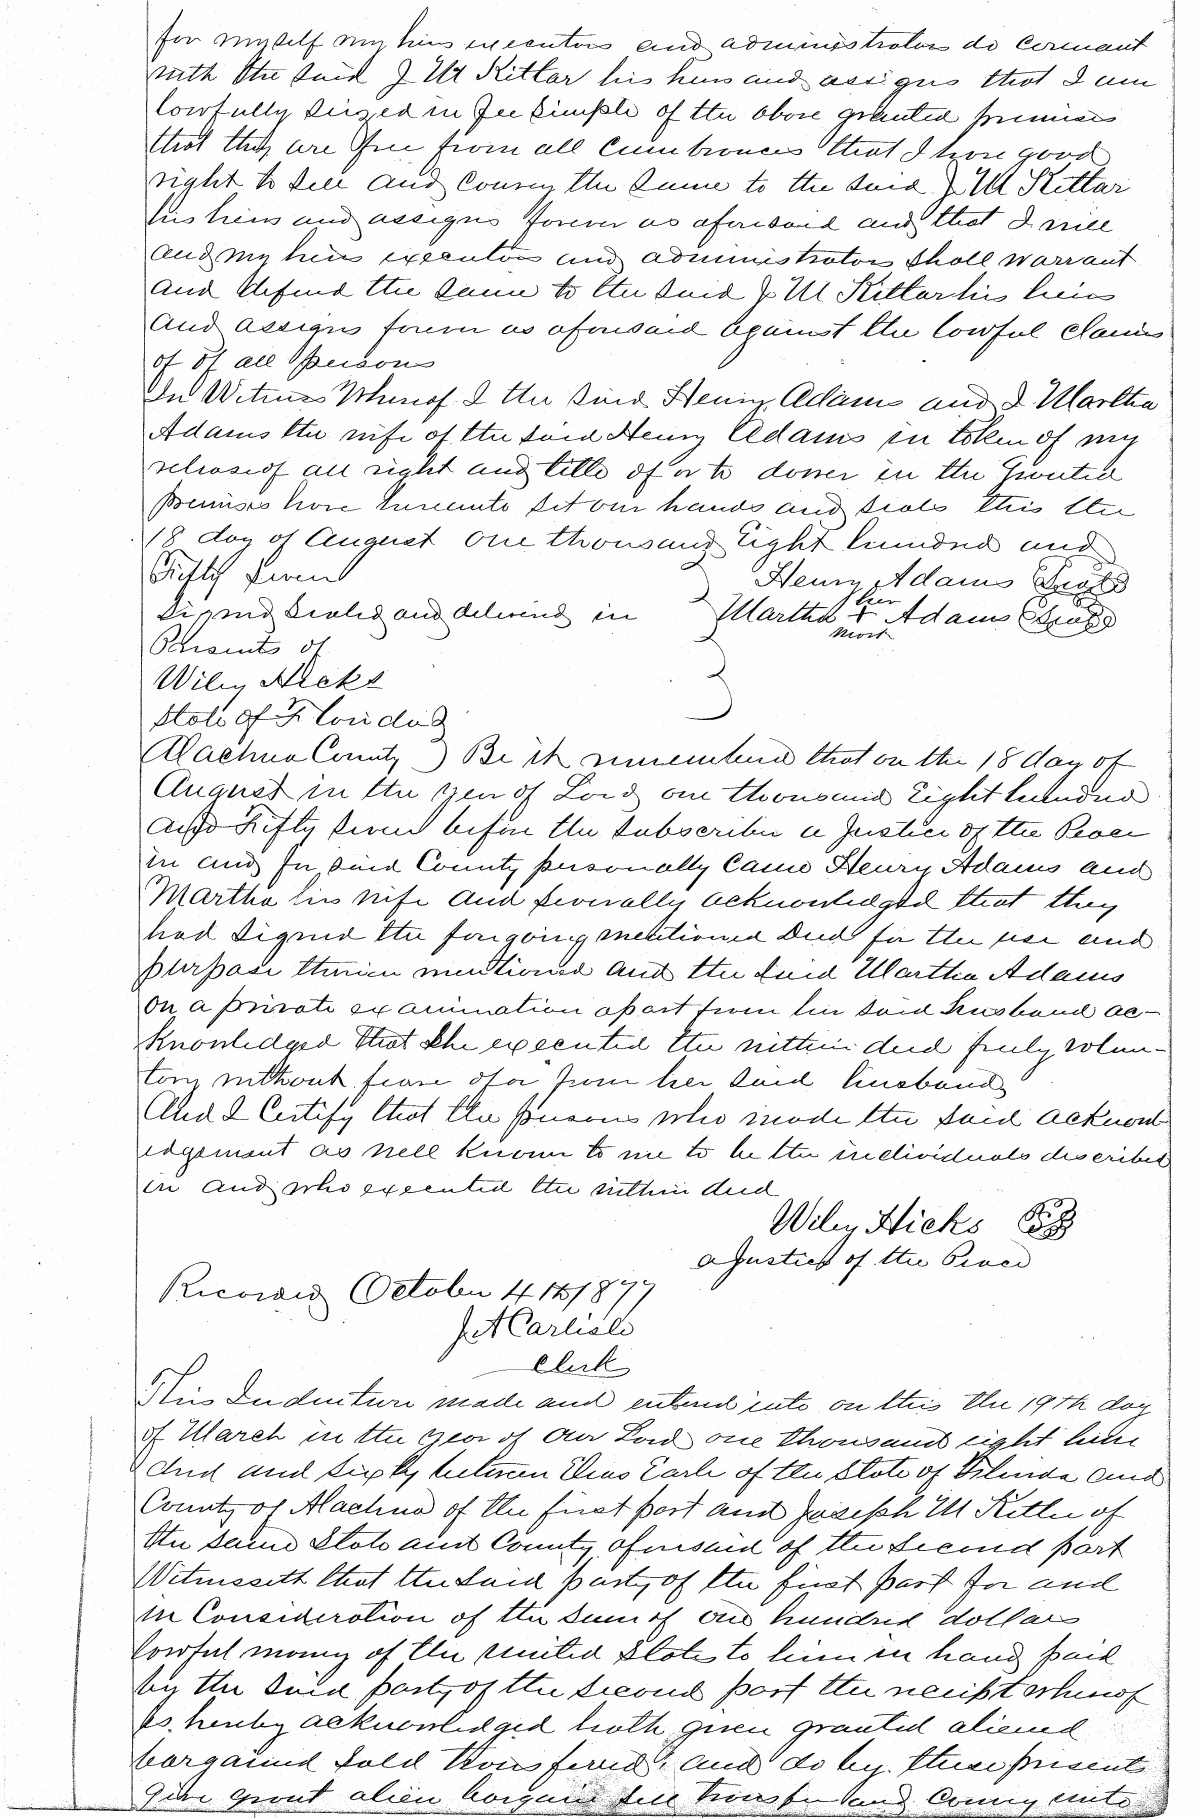 for myself my heirs executors and administrators do covenant
with the said J M Kittar his heirs and assigns that I am
lawfully seized in fee simple of the above granted premises
that they are free from all cumbrances that I have good
right to sell and convey the same to the said J. M Kittar
his heirs and assigns forever as aforesaid and that I will
and my heirs executors and administrators shall warrant
and defend the same to the said J M Kittar his heirs
and assigns forever as aforesaid against the lawful claims
of of all persons
In Witness Whereof I the said Henry Adams and I Martha
Adams the wife of the said Henry Adams in token of my
release of all right and title of or to dower in the Granted
premises have hereunto set our hands and seals this the
18 day of August one thousand Eight hundred and
Fifty Seven
Henry Adams Seal
Signed Sealed and delivered in
Martha her + mark Adams Seal
Presents of
Wiley Hicks
State of Florida
Alachua County ) Be it remembered that on the 18 day of
August in the year of Lord one thousand Eight hundred
and Fifty Seven before the Subscriber a Justice of the Peace
in and for said County personally Came Henry Adams and
Martha his wife and severally acknowledged that they
had signed the forgoing mentioned Deed for the use and
purpose therein mentioned and the said Martha Adams
on a private examination apart from her said husband ac-
knowledged that she executed the within deed freely volun-
tary without feare of or from her said husband
And I Certify that the persons who made the said acknowl
edgement as well known to me to be the individuals described
in and who executed the within deed
Wiley Hicks
a Justice of the Peace
Recorded October 4th 1877
J. A Carlisle
Clerk
This Indenture made and entered into on this the 19th day
of March in the year of our Lord one thousand eight hun
dred and sixty between Elias Earle of the State of Florida and
County of Alachua of the first part and Joseph M Kitler of
the same State and County aforesaid of the second part
Witnesseth that the said party of the first part for and
in Consideration of the sum of one hundred dollars
lawful money of the united States to him in hand paid
by the said party of the second part the receipt whereof
is hereby acknowledged hath given granted aliened
bargained sold transfered, and do by these presents
give grant alien bargain sell transfer and convey unto